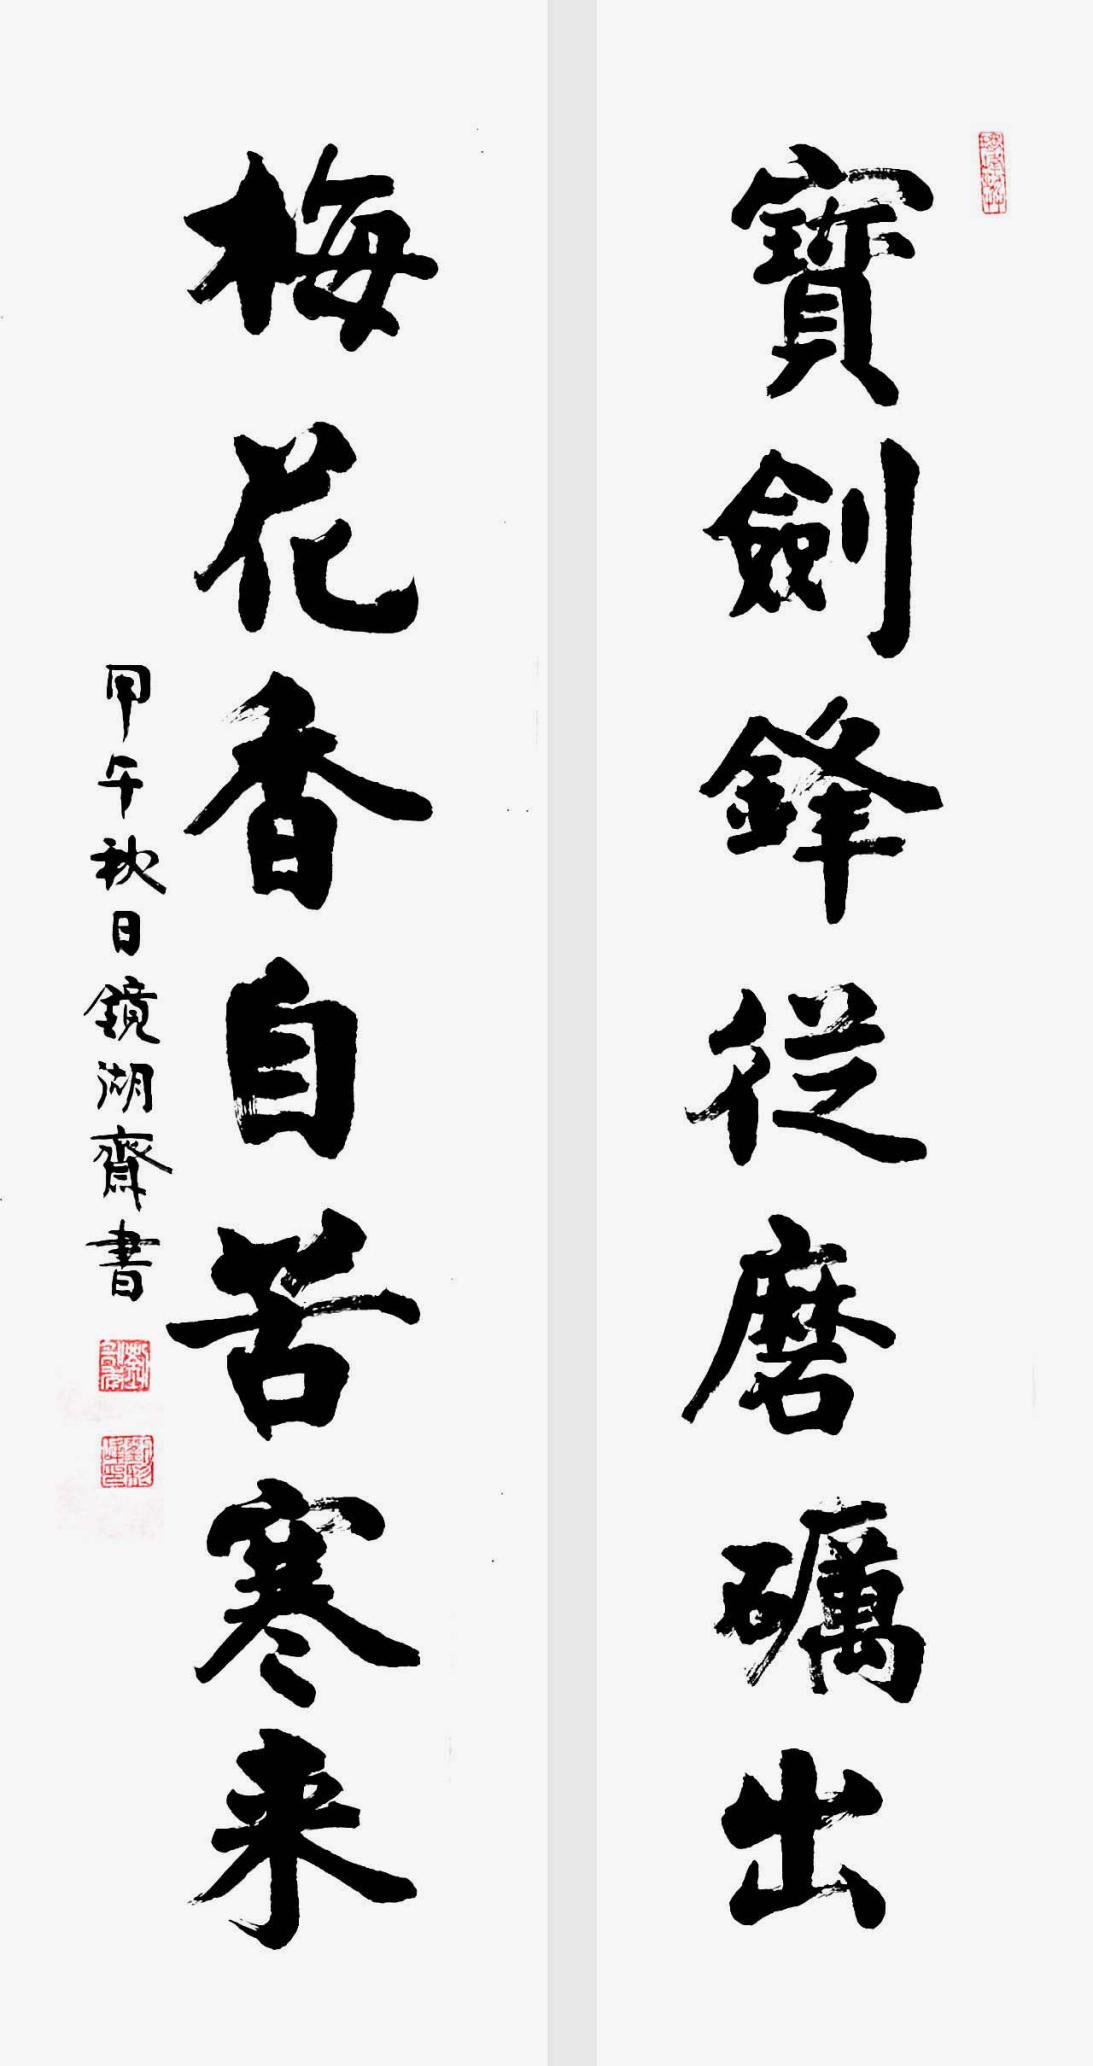 寶劍鋒從磨礪出
梅花香自苦寒来
甲午秋日鏡湖齋書